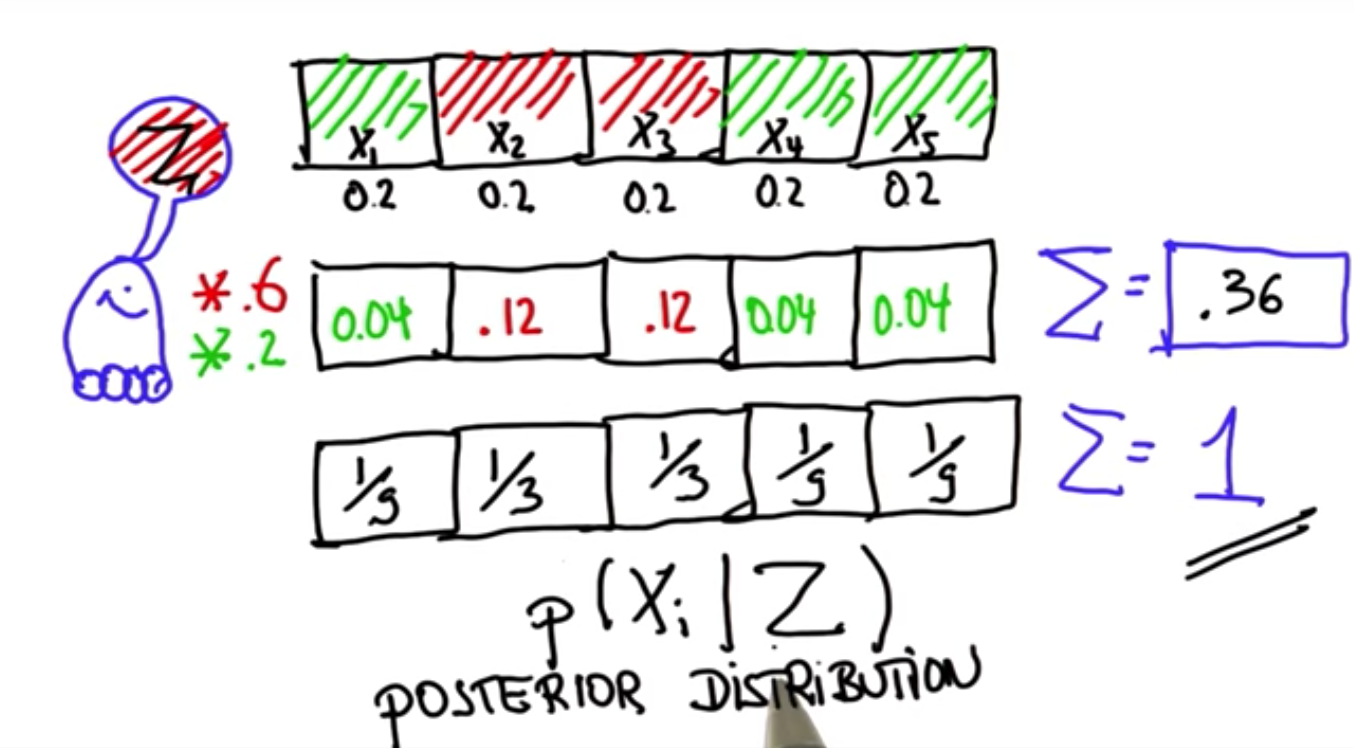 Z
X₁ X₂ X₃ X₄ X₅
0.2 0.2 0.2 0.2 0.2
*.6
*.2
0.04 .12 .12 0.04 0.04 Σ= .36
1/9 1/3 1/3 1/9 1/9 Σ= 1
p(Xᵢ|Z)
POSTERIOR DISTRIBUTION